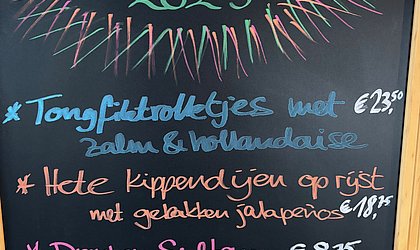 * Tongfiletrolletjes met €23,50
zalm & hollandaise
* Hete Kippendijen op rijst
met gebakken jalapeños €18,75